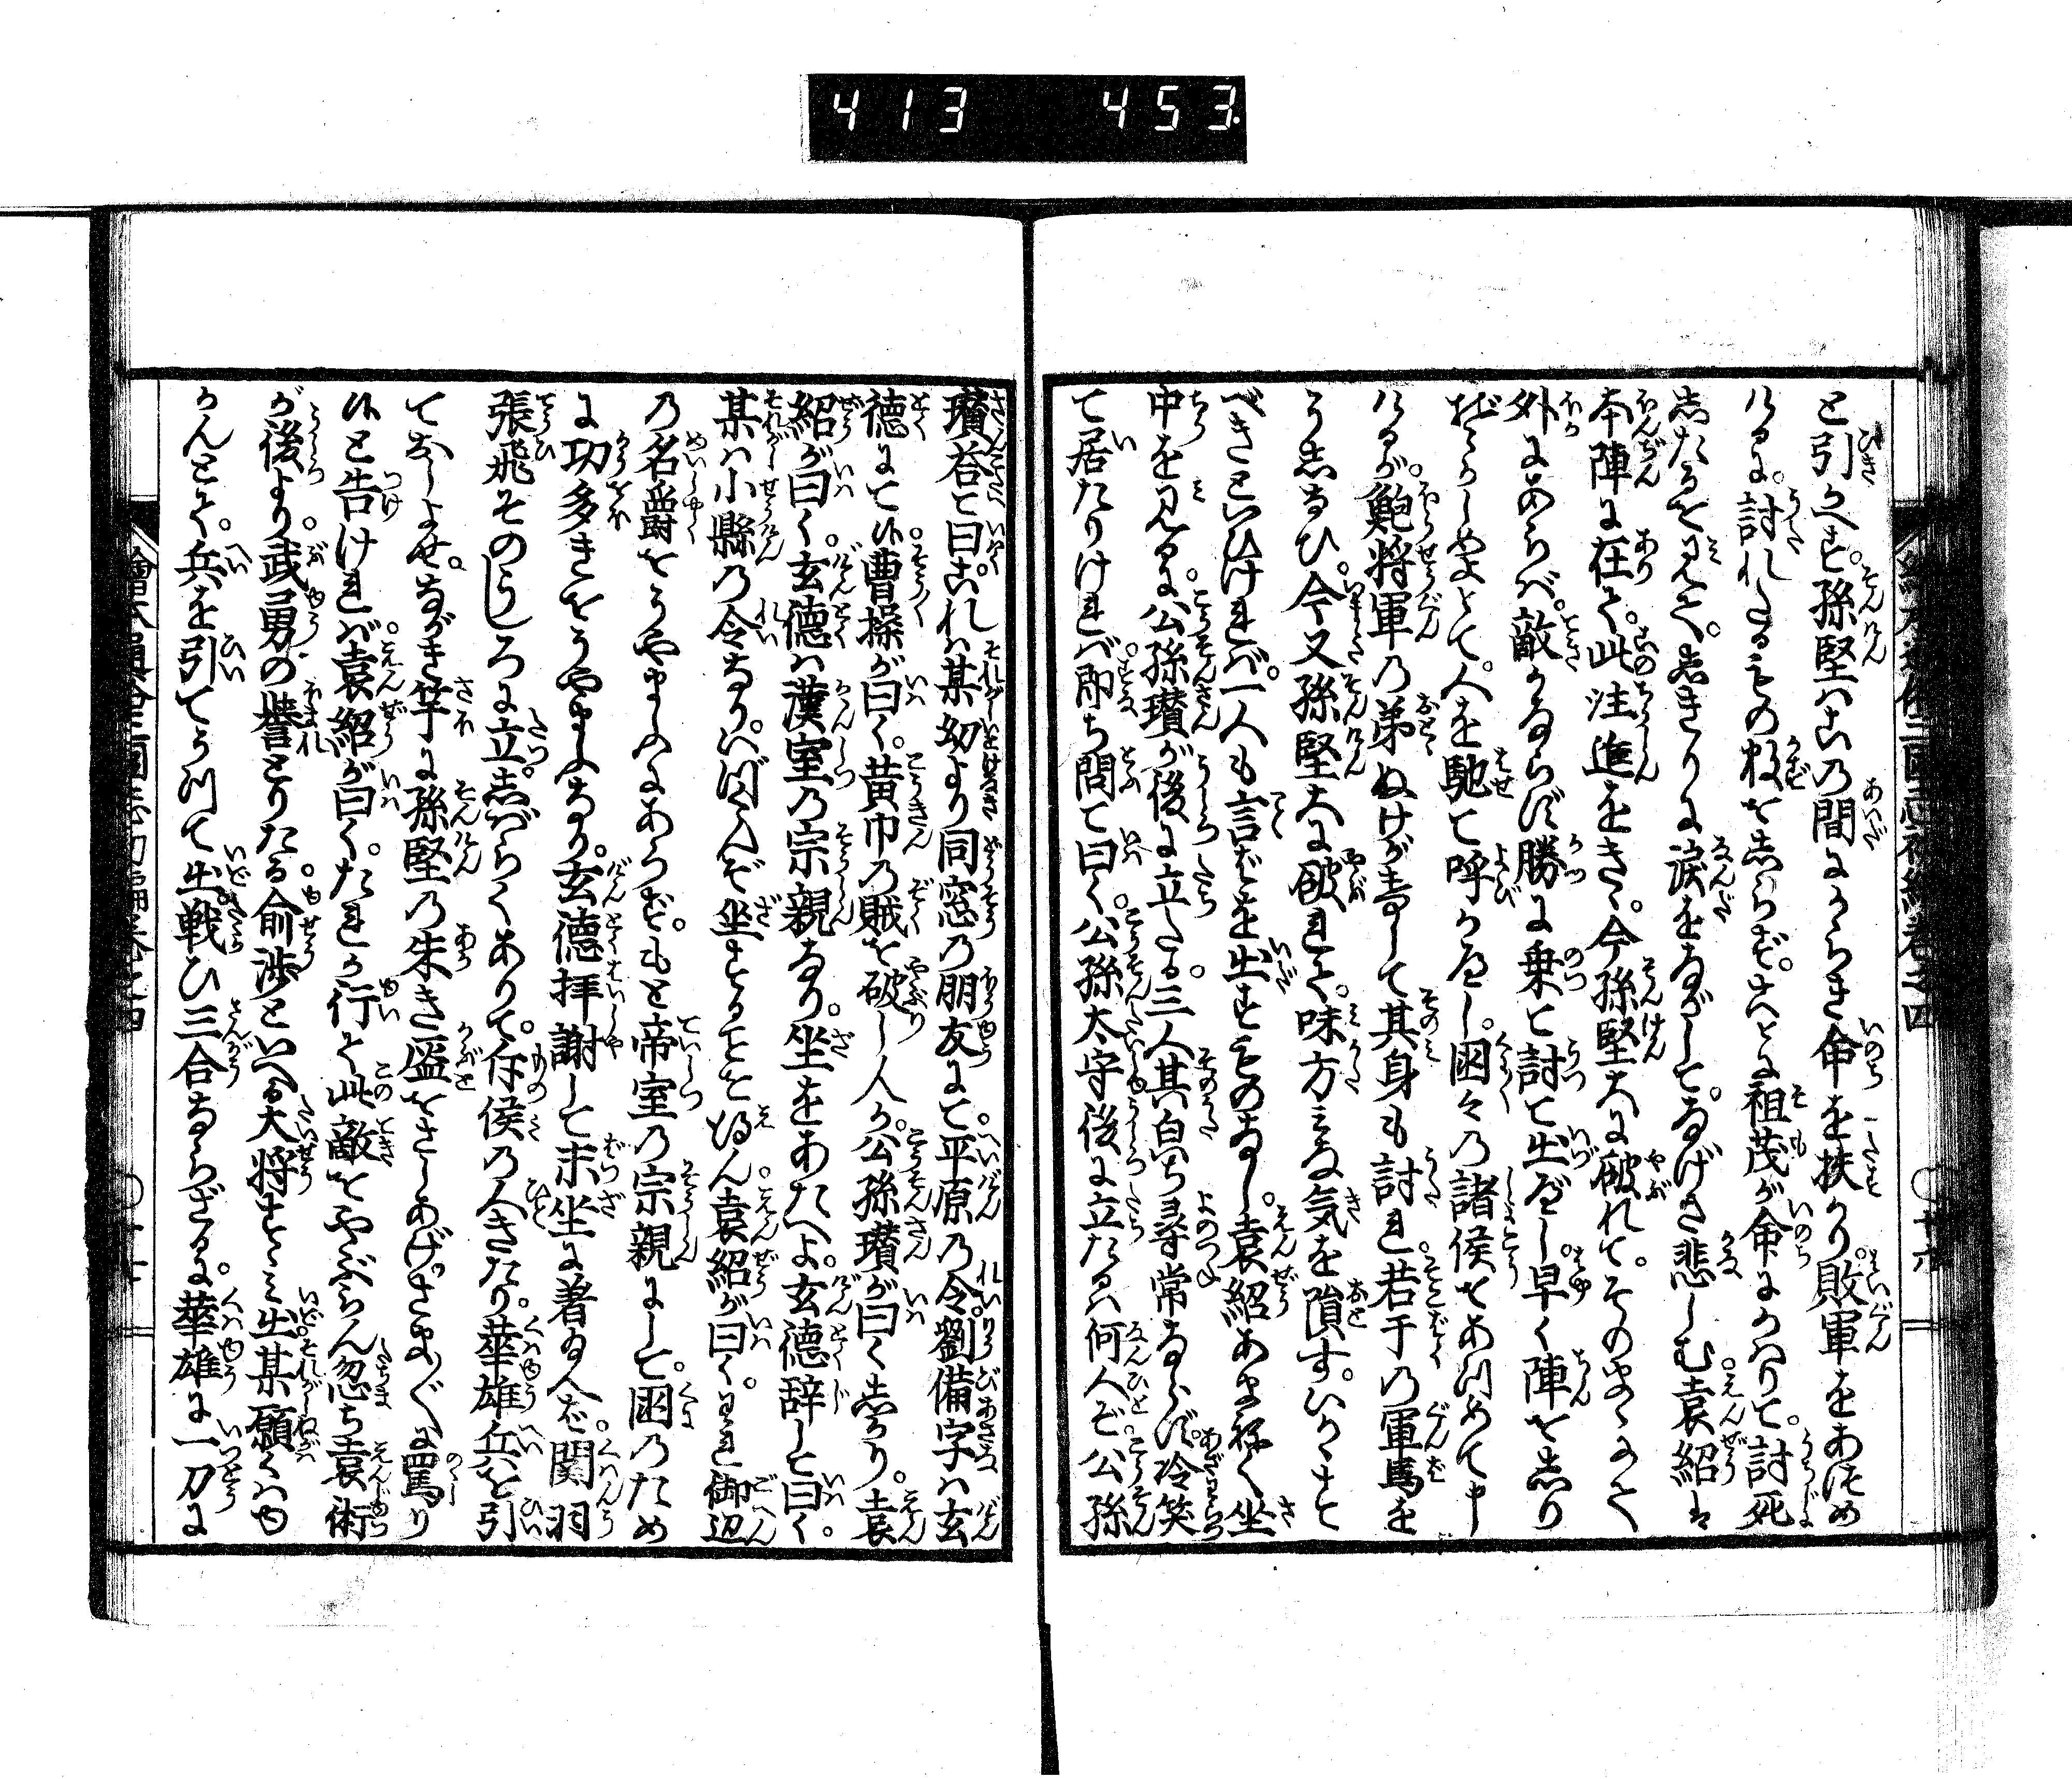 413 453
と引かへす。孫堅はこの間にからき命を扶かり。敗軍をあつめ
けるに。討れたるものの数をしらず。ことに祖茂が命にかはりて。討死
したるをみて。しきりに涙をながして。なげき悲しむ。袁紹は
本陣に在て。此注進をきゝ。今孫堅大に敗れて。そのまゝにて
外にあらば。敵かならず勝に乗て討て出べし。早く陣をしり
ぞかしめよとて。人を馳て呼かへし。国々の諸侯をあつめて申
けるが。鮑将軍の弟ぬけがけして其身も討れ。若干の軍馬を
うしなひ。今又孫堅大に敗れて。味方みな気を隕す。いかゞす
べきといひければ。一人も言ばを出すものなし。袁紹あまねく坐
中を見るに。公孫瓚が後に立たる。三人其かたち尋常ならず。冷笑
て居たりければ即ち問て曰く。公孫太守後に立たるは何人ぞ公孫
瓚答て曰これは某幼より同窓の朋友にて。平原の令。劉備字は玄
徳にて候。曹操が曰く。黄巾の賊を破りし人か。公孫瓚が曰くしかり。袁
紹が曰く。玄徳は漢室の宗親なり。坐をあたへよ。玄徳辞して曰く。
某は小縣の令なり。いかんぞ坐することを得ん。袁紹が曰く。われ御辺
の名爵をうやまふにあらず。もと帝室の宗親にして。国のため
に功多きをうやまふなり。玄徳拝謝して末坐に着ゐへば。関羽
張飛そのうしろに立。しばらくありて。斥侯の人きたり。華雄兵を引
ておしよせ。ながき竿に孫堅の朱き盔をさしあげ。さまざまに罵り
候と告ければ。袁紹が曰く。たれか行て此敵をやぶらん。忽ち袁術
が後より。武勇の誉とりたる。俞渉といへる大将すゝみ出。某願くはむ
かんとて。兵を引てうつて出。戦ひ三合ならざるに。華雄に一刀に